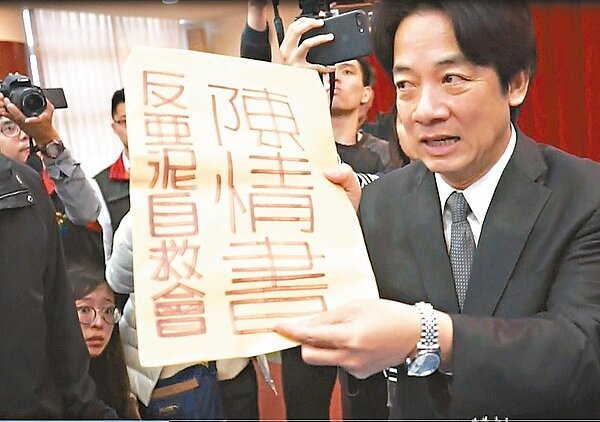 陳情書
反亞泥自救會